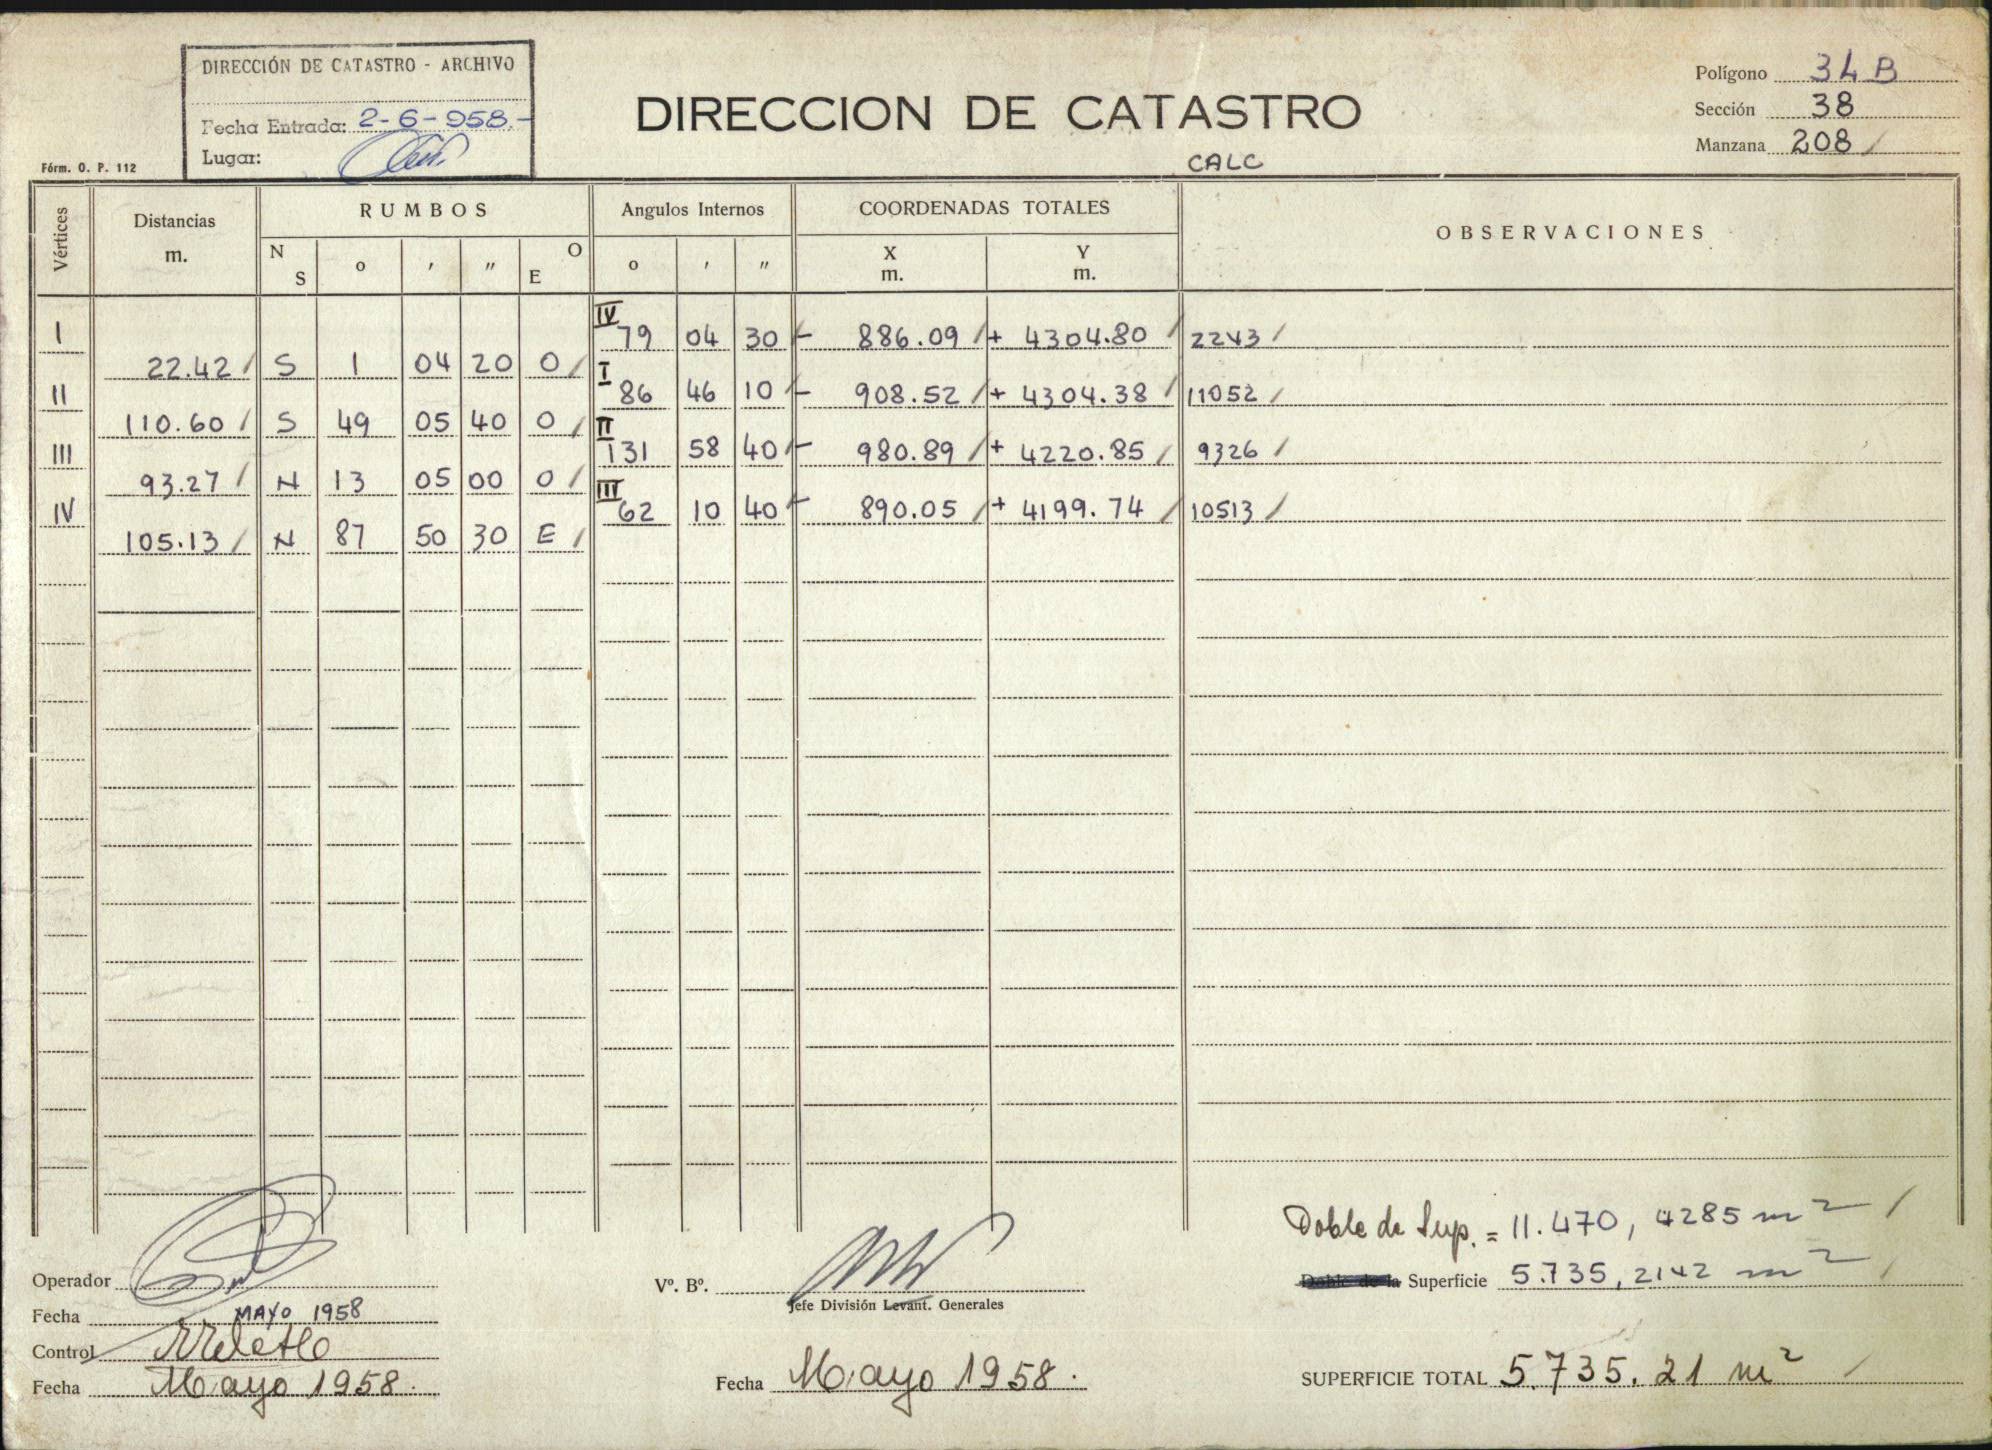 DIRECCIÓN DE CATASTRO - ARCHIVO
Fecha Entrada: 2-6-958.-
Lugar:
Fórm. O. P. 112
DIRECCION DE CATASTRO
CALC
Polígono 34 B
Sección 38
Manzana 208 /
Vértices Distancias m. RUMBOS Angulos Internos COORDENADAS TOTALES OBSERVACIONES
N S o ′ ″ E O o ′ ″ X m. Y m.
I IV 79 04 30 - 886.09 / + 4304.80 / 2243 /
22.42 / S 1 04 20 O /
II I 86 46 10 - 908.52 / + 4304.38 / 11052 /
110.60 / S 49 05 40 O /
III II 131 58 40 - 980.89 / + 4220.85 / 9326 /
93.27 / N 13 05 00 O /
IV III 62 10 40 - 890.05 / + 4199.74 / 10513 /
105.13 / N 87 50 30 E /
Doble de Sup. = 11.470, 4285 m² /
Doble de la Superficie 5.735, 2142 m² /
SUPERFICIE TOTAL 5.735. 21 m² /
Operador
Fecha MAYO 1958
Control
Fecha Mayo 1958.
Vº. Bº.
Jefe División Levant. Generales
Fecha Mayo 1958.